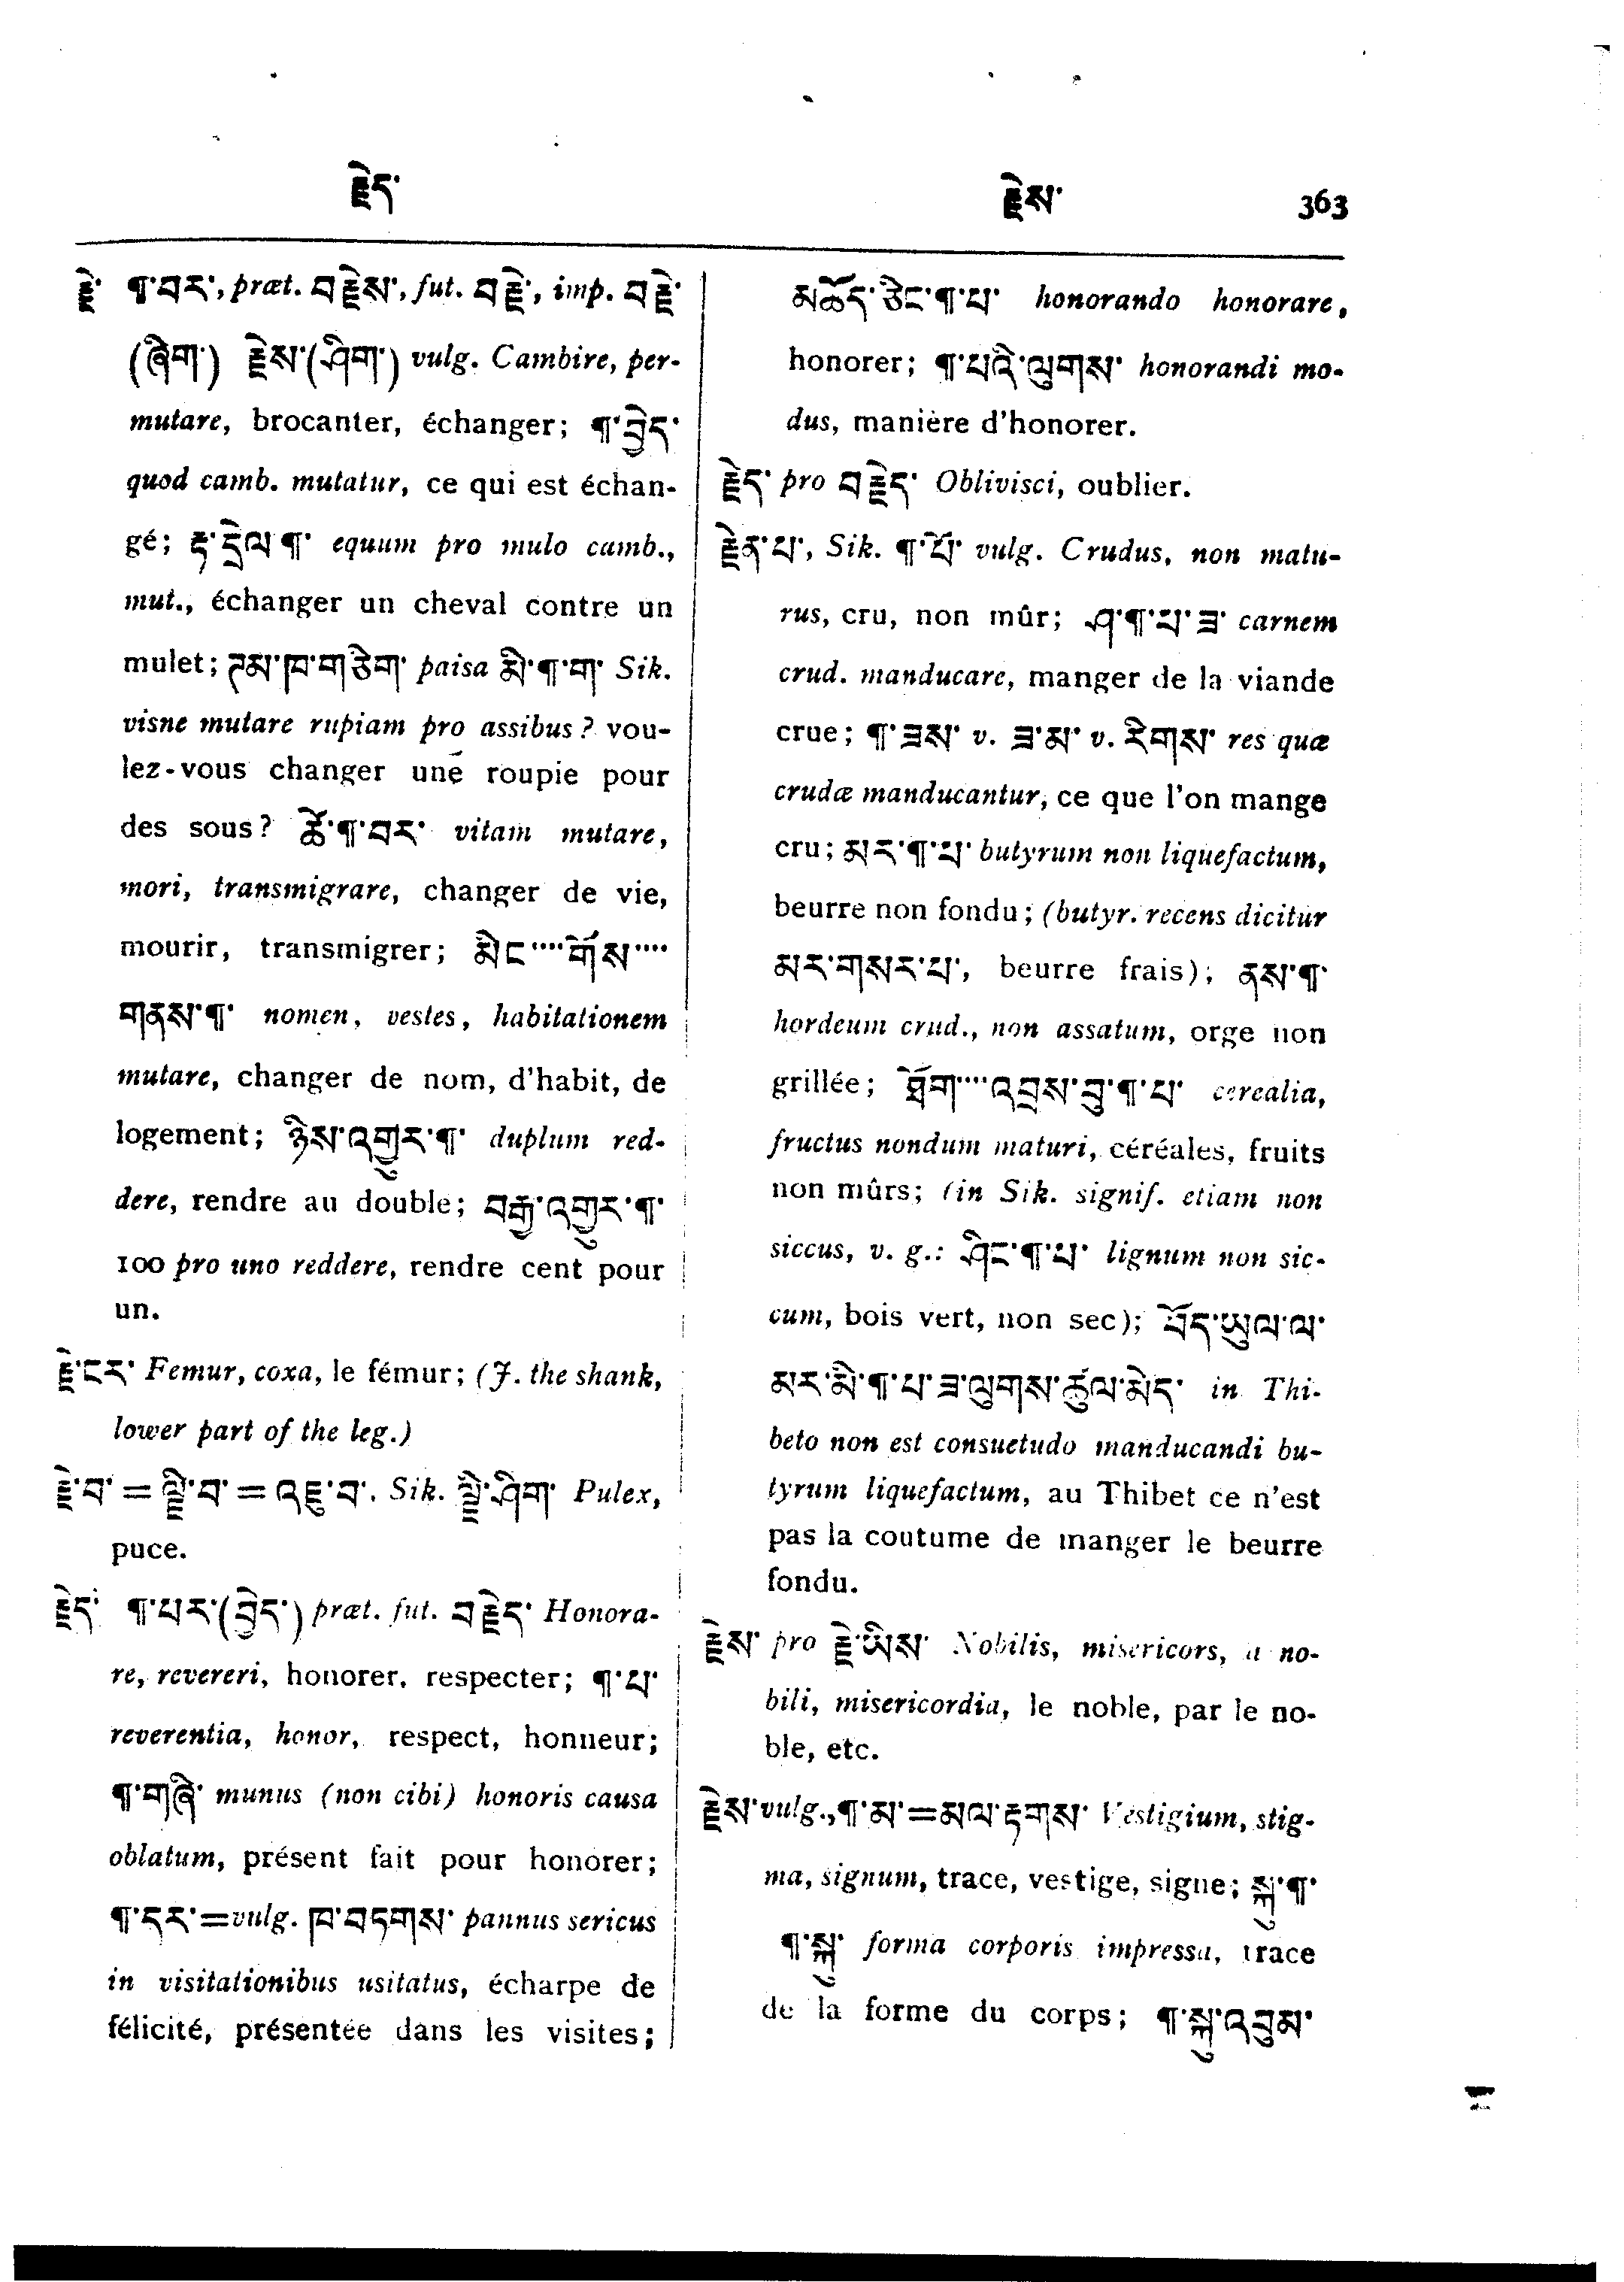 རྗེད་
རྗེས་ 363
རྗེ་ ¶་བར་, præt. བརྗེས་, fut. བརྗེ་, imp. བརྗེ་
(ཞིག་) རྗེས་(ཤིག་) vulg. Cambire, per-
mutare, brocanter, échanger; ¶་བྱེད་
quod camb. mutatur, ce qui est échan-
gé; རྟ་དྲེལ་¶་ equum pro mulo camb.,
mut., échanger un cheval contre un
mulet; ཊམ་ཁ་གཅིག་ paisa མི་¶་ག་ Sik.
visne mutare rupiam pro assibus? vou-
lez-vous changer une roupie pour
des sous? ཚེ་¶་བར་ vitam mutare,
mori, transmigrare, changer de vie,
mourir, transmigrer; མིང་····གོས་····
གནས་¶་ nomen, vestes, habitationem
mutare, changer de nom, d'habit, de
logement; ཉིས་འགྱུར་¶་ duplum red-
dere, rendre au double; བརྒྱ་འགྱུར་¶་
100 pro uno reddere, rendre cent pour
un.
རྗེ་ངར་ Femur, coxa, le fémur; (J. the shank,
lower part of the leg.)
རྗེ་བ་ = ལྗི་བ་ = འཇུ་བ་. Sik. ལྗི་ཤིག་ Pulex,
puce.
རྗེད་ ¶་པར་(བྱེད་) præt. fut. བརྗེད་ Honora-
re, revereri, honorer, respecter; ¶་པ་
reverentia, honor, respect, honneur;
¶་གཞི་ munus (non cibi) honoris causa
oblatum, présent fait pour honorer;
¶་དར་=vulg. ཁ་བཏགས་ pannus sericus
in visitationibus usitatus, écharpe de
félicité, présentée dans les visites;
མཆོད་ཅིང་¶་པ་ honorando honorare,
honorer; ¶་པའི་ལུགས་ honorandi mo-
dus, manière d'honorer.
རྗེད་ pro བརྗེད་ Oblivisci, oublier.
རྗེན་པ་, Sik. ¶་པོ་ vulg. Crudus, non matu-
rus, cru, non mûr; ཤ་¶་པ་ཟ་ carnem
crud. manducare, manger de la viande
crue; ¶་ཟས་ v. ཟ་མ་ v. རིགས་ res quæ
crudæ manducantur, ce que l'on mange
cru; མར་¶་པ་ butyrum non liquefactum,
beurre non fondu; (butyr. recens dicitur
མར་གསར་པ་, beurre frais); ནས་¶་
hordeum crud., non assatum, orge non
grillée; ཐོག་····འབྲས་བུ་¶་པ་ cerealia,
fructus nondum maturi, céréales, fruits
non mûrs; (in Sik. signif. etiam non
siccus, v. g.: ཤིང་¶་པ་ lignum non sic-
cum, bois vert, non sec); བོད་ཡུལ་ལ་
མར་མི་¶་པ་ཟ་ལུགས་ཚུལ་མེད་ in Thi-
beto non est consuetudo manducandi bu-
tyrum liquefactum, au Thibet ce n'est
pas la coutume de manger le beurre
fondu.
རྗེས་ pro རྗེ་ཡིས་ Nobilis, misericors, a no-
bili, misericordia, le noble, par le no-
ble, etc.
རྗེས་ vulg., ¶་མ་=མལ་རྟགས་ Vestigium, stig-
ma, signum, trace, vestige, signe; སྐུ་¶་
¶་སྐུ་ forma corporis impressa, trace
de la forme du corps; ¶་སྐུ་འབུམ་